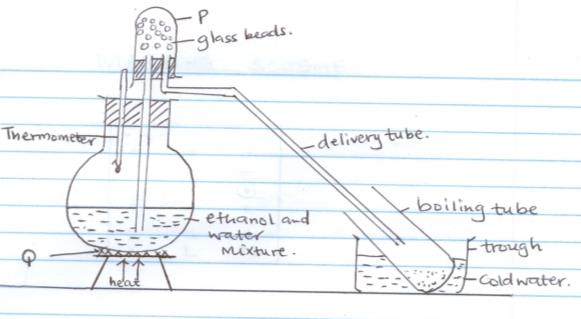 P
glass beads.
Thermometer
delivery tube.
boiling tube
ethanol and
water
Mixture.
trough
Q
heat
Cold water.